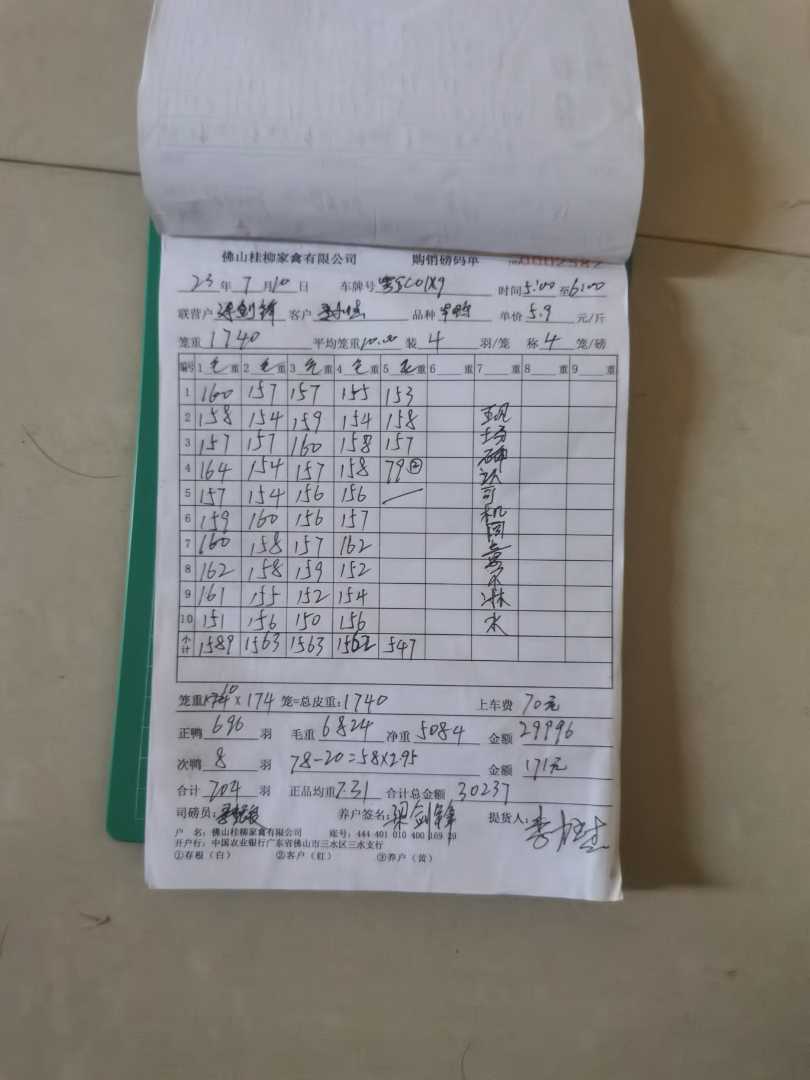 佛山桂柳家禽有限公司 购销磅码单 0002582
23 年 7 月 10 日 车牌号 时间 5:00 至 6:00
联营户 客户 品种 单价 5.9 元/斤
笼重 1740 平均笼重 10.00 装 4 羽/笼 称 4 笼/磅
编号 1 毛 重 2 毛 重 3 毛 重 4 毛 重 5 毛 重 6 重 7 重 8 重 9 重
1 160 157 157 155 153
2 158 154 159 154 158 现
3 157 157 160 158 157 场
4 164 154 157 158 79② 确认
5 157 154 156 156 司
6 159 160 156 157 机
7 160 158 157 162
8 162 158 159 152 要
9 161 155 152 154 求淋
10 151 156 150 156 水
小计 1589 1563 1563 1562 547
笼重 10 x 174 笼=总皮重: 1740 上车费 70元
正鸭 696 羽 毛重 6824 净重 5084 金额 29996
次鸭 8 羽 78-20=58x2.95 金额 171元
合计 704 羽 正品均重 7.31 合计总金额 30237
司磅员: 养户签名: 梁剑锋 提货人:
户 名: 佛山桂柳家禽有限公司 账号: 444 401 010 400 169 29
开户行: 中国农业银行广东省佛山市三水区三水支行
①存根(白) ②客户(红) ③养户(黄)